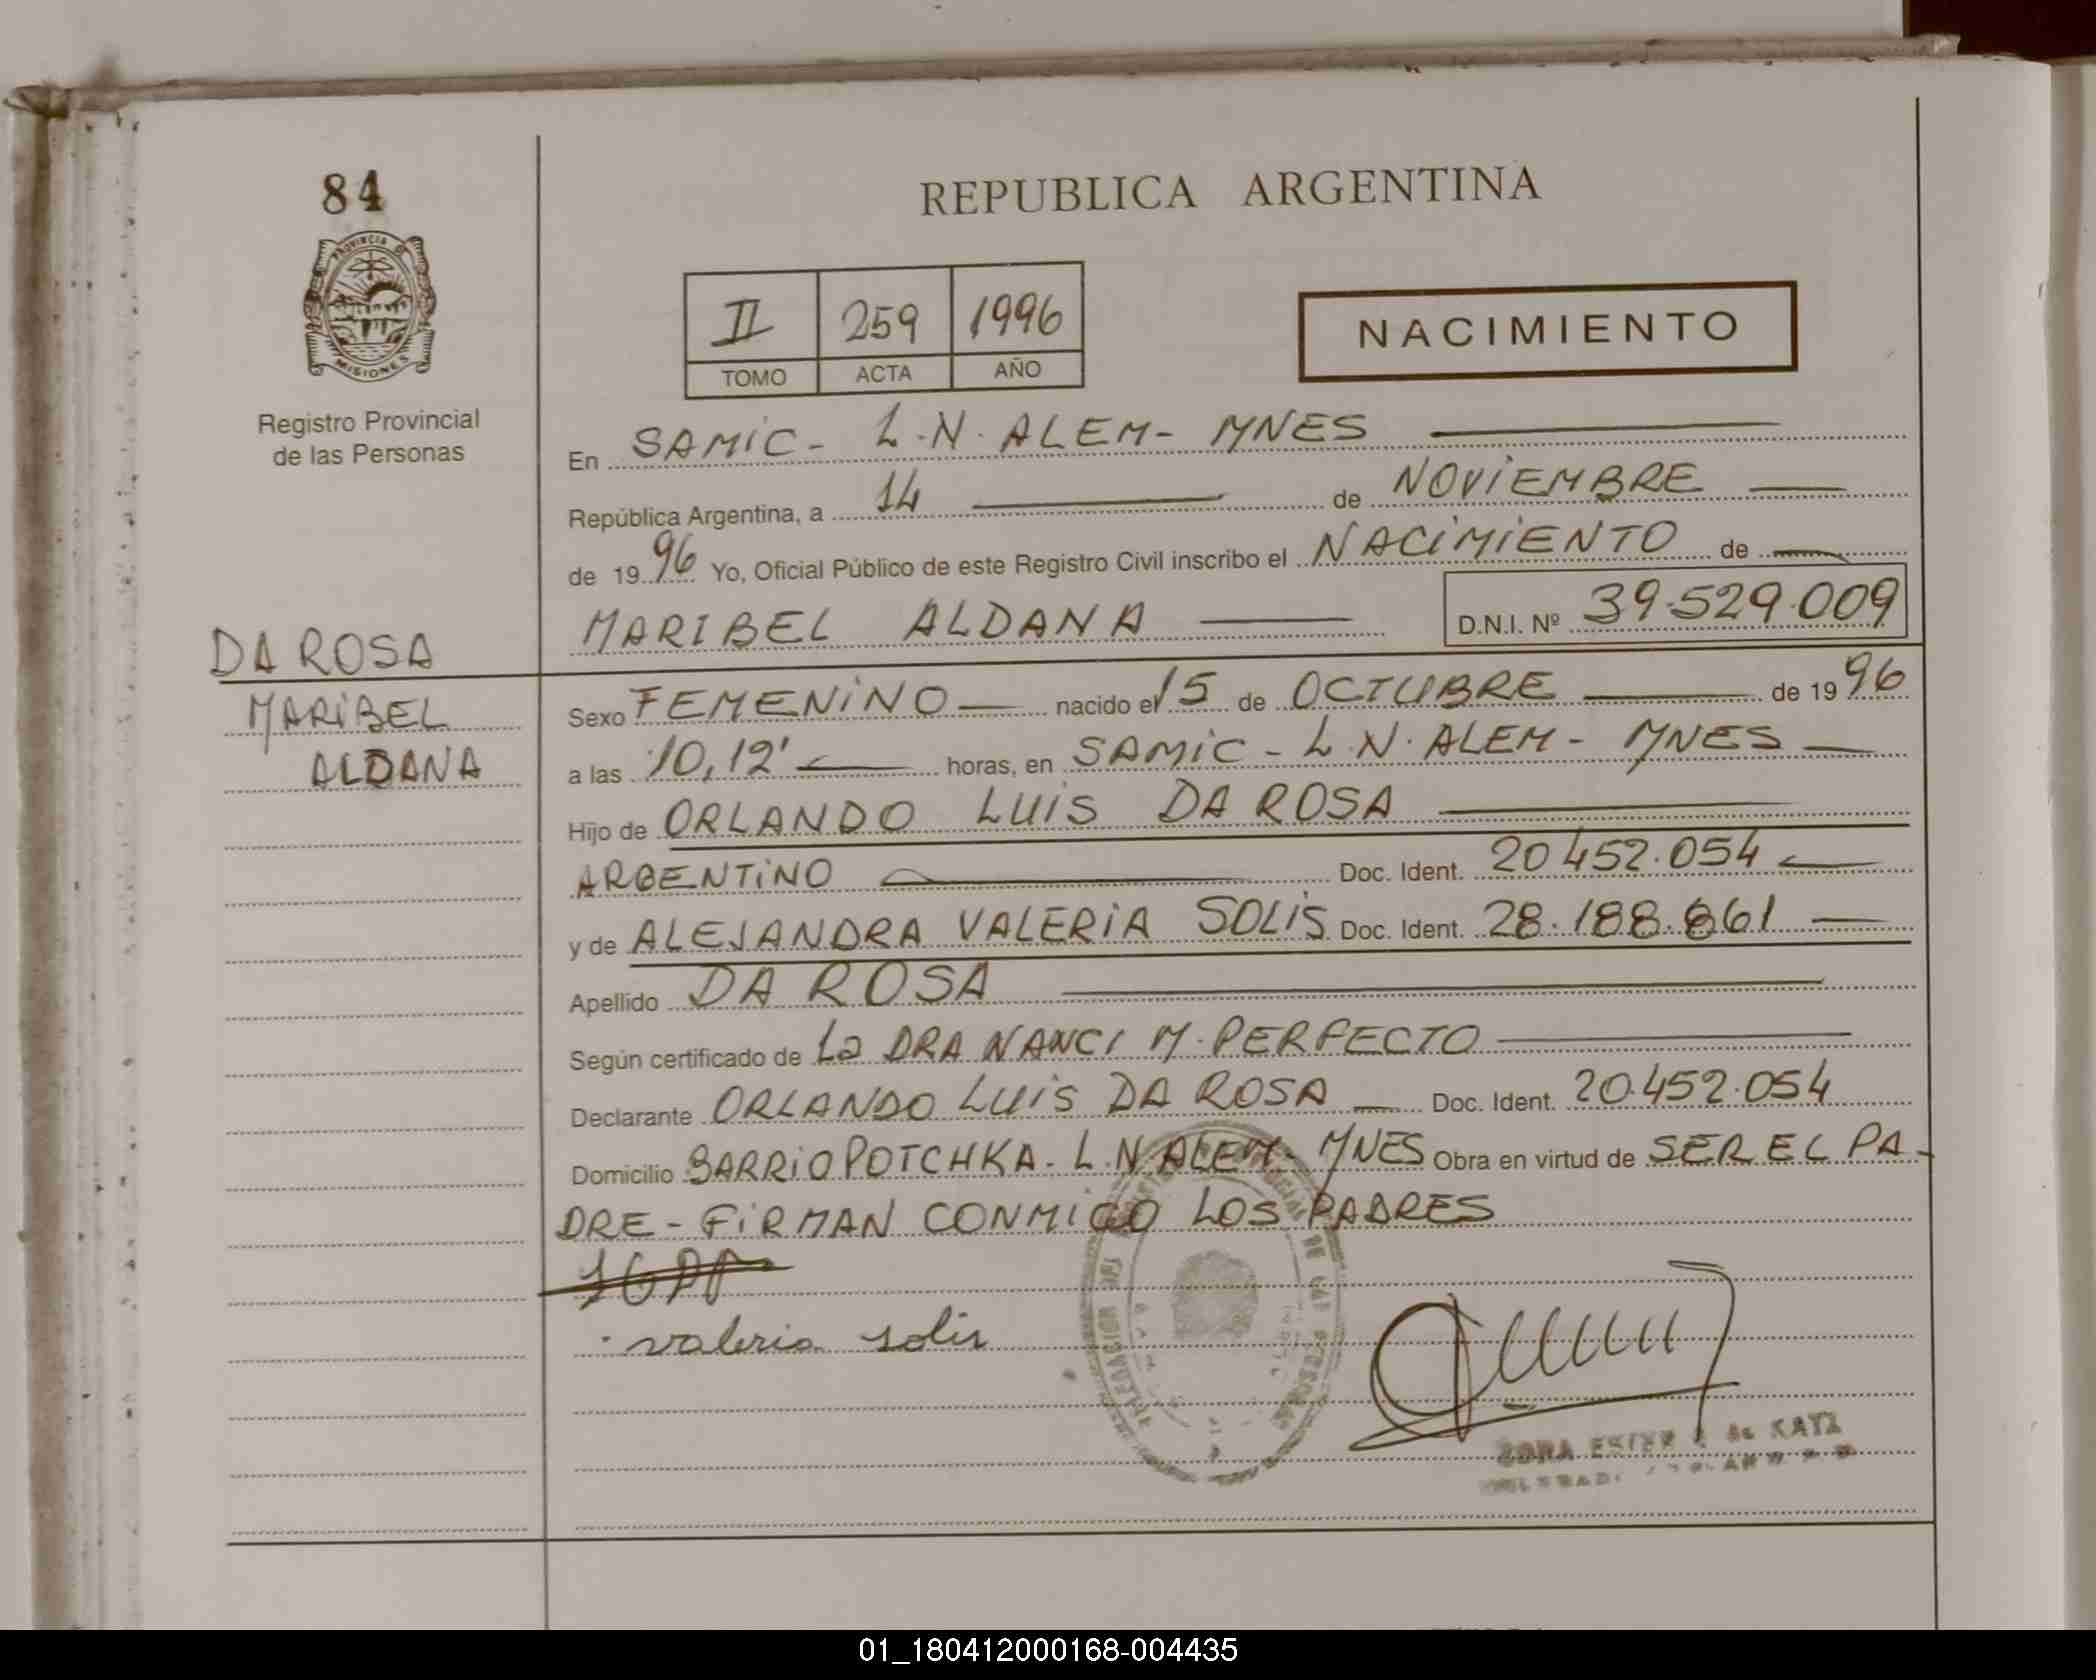 84
PROVINCIA DE
MISIONES
Registro Provincial
de las Personas
DA ROSA
MARIBEL
ALDANA
REPUBLICA ARGENTINA
II 259 1996
TOMO ACTA AÑO
NACIMIENTO
En SAMIC - L.N. ALEM - MNES
República Argentina, a 14 de NOVIEMBRE
de 1996 Yo, Oficial Público de este Registro Civil inscribo el NACIMIENTO de
MARIBEL ALDANA D.N.I. Nº 39.529.009
Sexo FEMENINO nacido el 15 de OCTUBRE de 1996
a las 10,12' horas, en SAMIC - L.N. ALEM - MNES
Hijo de ORLANDO LUIS DA ROSA
ARGENTINO Doc. Ident. 20 452.054
y de ALEJANDRA VALERIA SOLIS Doc. Ident. 28.188.661
Apellido DA ROSA
Según certificado de La DRA NANCI M. PERFECTO
Declarante ORLANDO LUIS DA ROSA Doc. Ident. 20.452.054
Domicilio BARRIO POTCHKA. L.N. ALEM - MNES Obra en virtud de SER EL PA-
DRE - FIRMAN CONMIGO LOS PADRES
valeria solis
DE LAS PERSONAS
DELEGACION
de KATZ
01_180412000168-004435